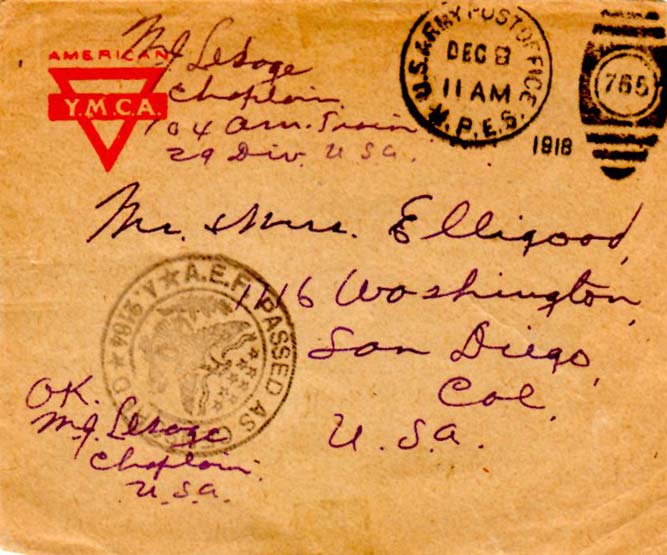 AMERICAN
Y.M.C.A.
M. J. LeSage
Chaplain
104 Am. Train
29 Div. U S a.
U.S. ARMY POST OFFICE
DEC 8
11 AM
M.P.E.S.
1918
765
Mr. & Mrs. Elligood,
1116 Washington,
San Diego,
Cal.
U. S. a.
A.E.F. PASSED AS CENSORED
OK.
M. J. LeSage
Chaplain.
U.S.a.